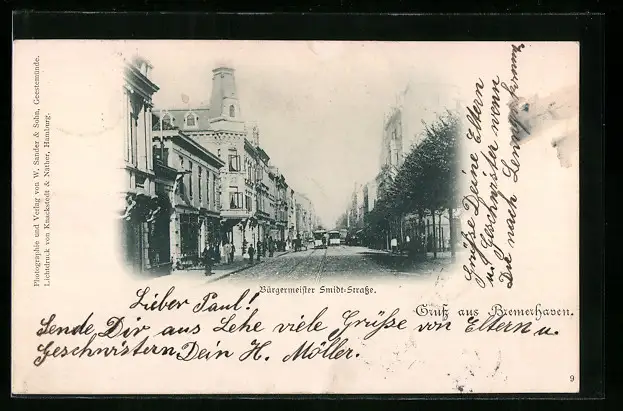 Photographie und Verlag von W. Sander & Sohn, Geestemünde.
Lichtdruck von Knackstedt & Näther, Hamburg.
Bürgermeister Smidt-Straße.
Gruß aus Bremerhaven.
Lieber Paul!
Sende Dir aus Lehe viele Grüße von Eltern u.
Geschwistern Dein H. Möller.
Grüße Deine Eltern
u Geschwister wenn
Du nach
9